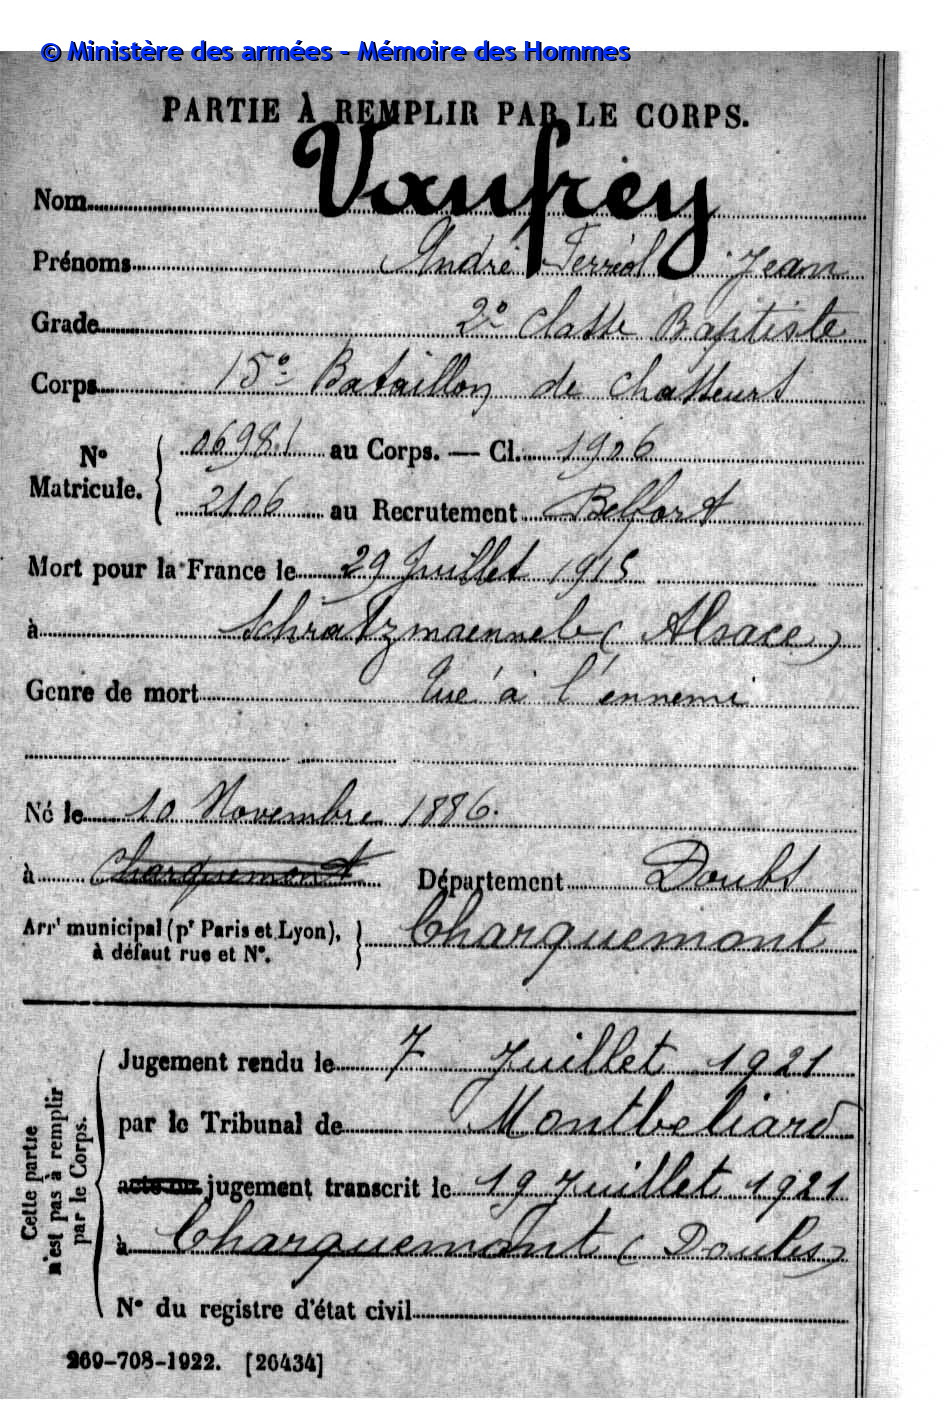 © Ministère des armées - Mémoire des Hommes
PARTIE À REMPLIR PAR LE CORPS.
Nom Vaufrey
Prénoms André Ferréol Jean
Grade 2e classe Baptiste
Corps 15e Bataillon de chasseurs
N° Matricule. { 06981 au Corps. — Cl. 1906
2106 au Recrutement Belfort
Mort pour la France le 29 Juillet 1915
à Schratzmaennelé (Alsace)
Genre de mort Tué à l'ennemi
Né le 10 Novembre 1886.
à Charquemont Département Doubs
Arrt municipal (pr Paris et Lyon), à défaut rue et N°. } Charquemont
Cette partie n'est pas à remplir par le Corps.
Jugement rendu le 7 Juillet 1921
par le Tribunal de Montbeliard
acte ou jugement transcrit le 19 Juillet 1921
à Charquemont (Doubs)
N° du registre d'état civil
269-708-1922. [26434]